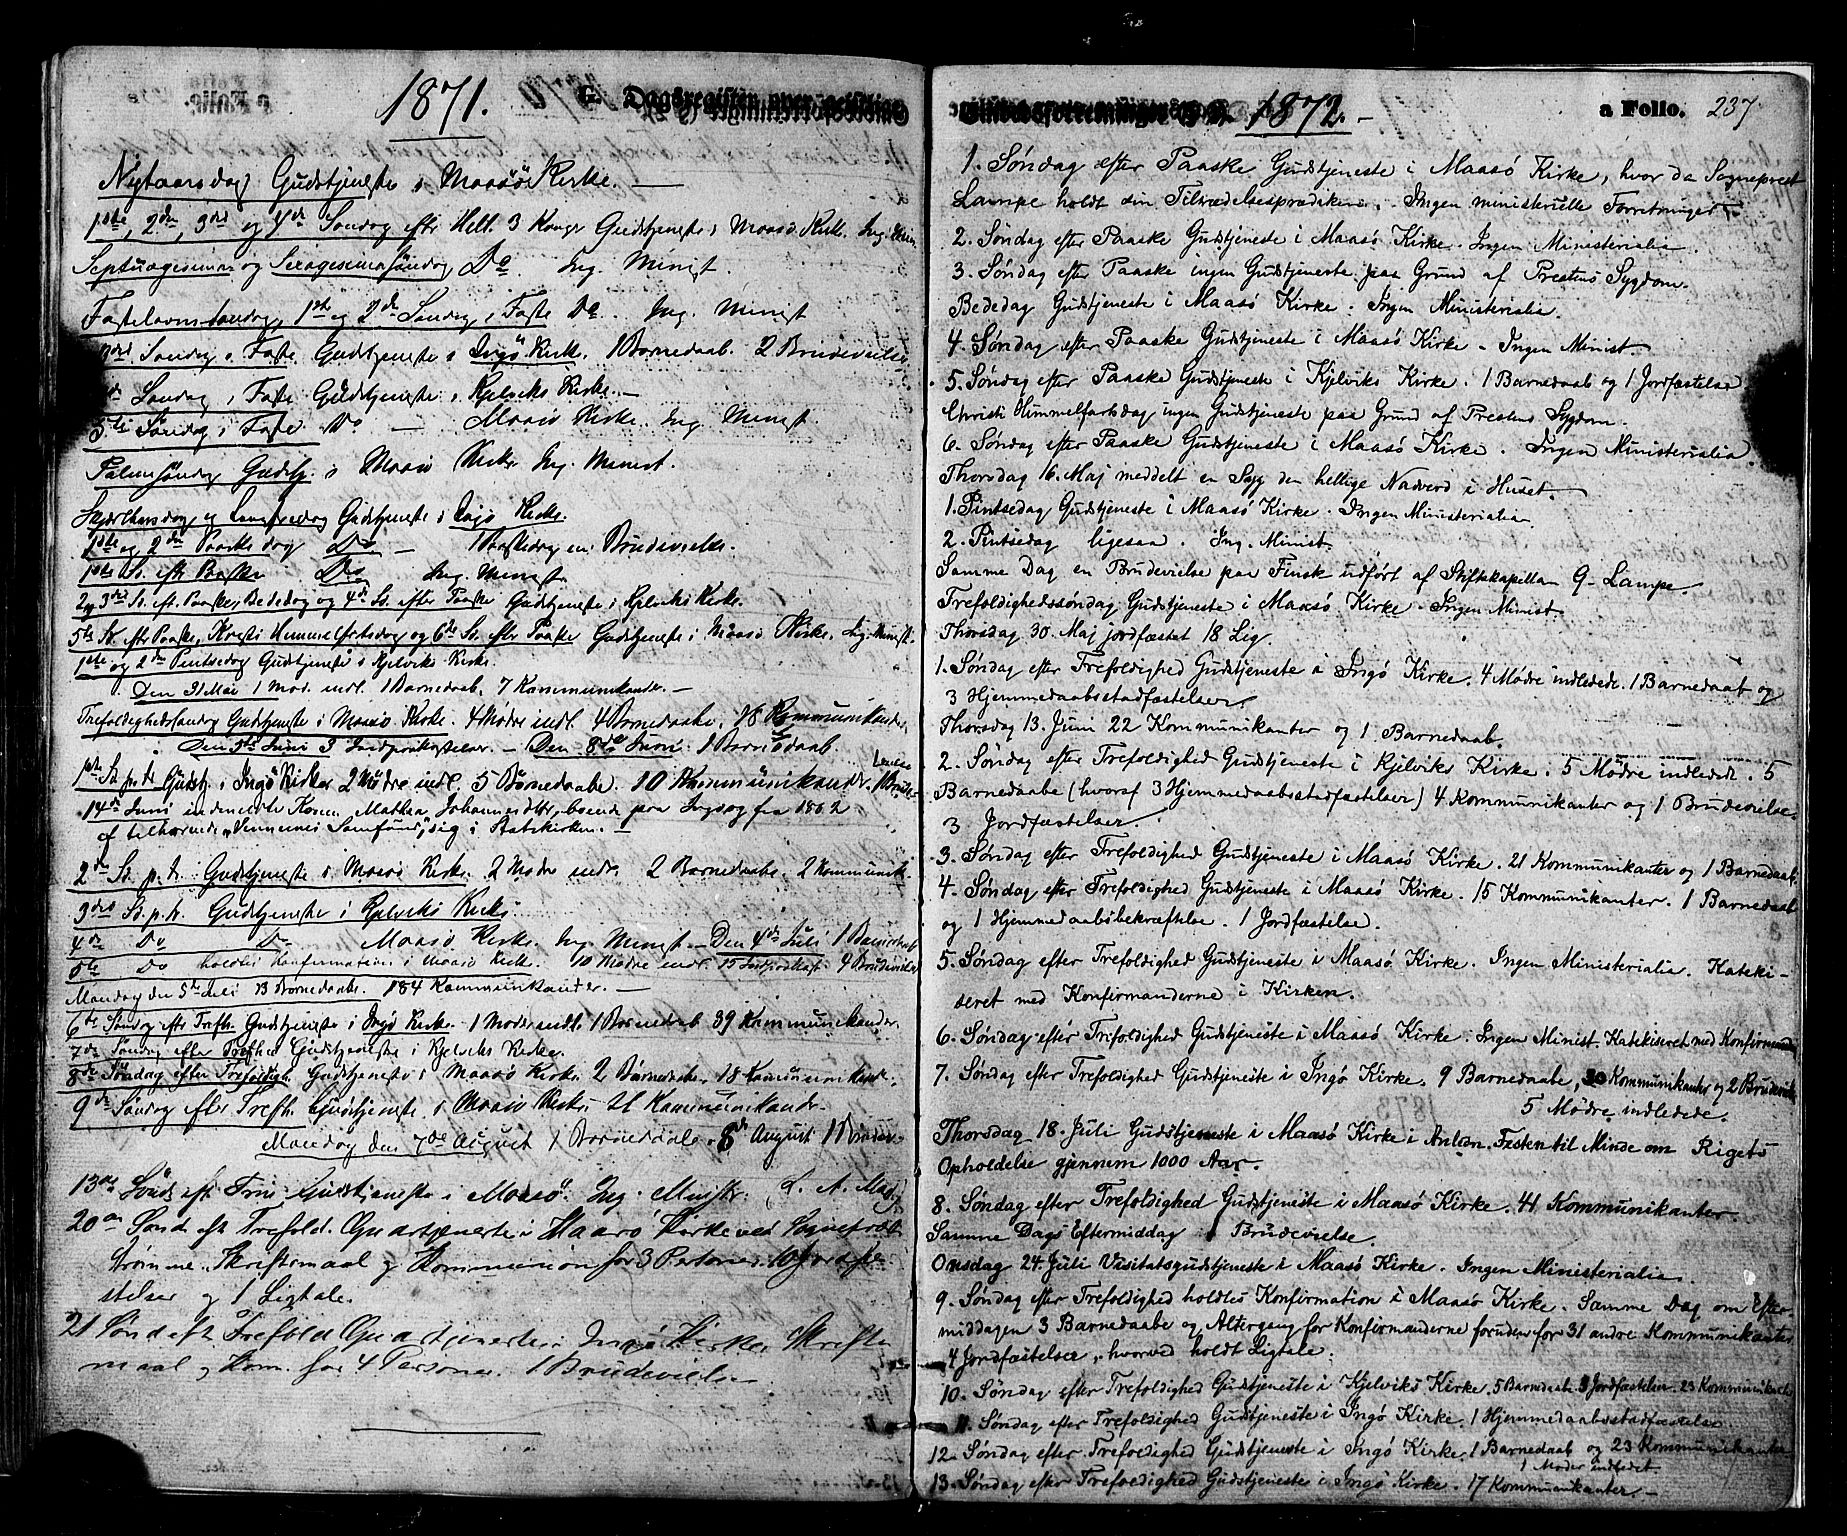 1871. G. Dagsregister over geistlige
Nytaarsdag Gudstjeneste i Maasö Kirke. —
1ste, 2den, 3die og 4de Søndag efter Hell. 3 Konger Gudstjeneste i Maasö Kirke. Ing. Min.
Septuagesima og Sexagesima Søndag Do Ing. Minist
Fastelavns Søndag, 1ste og 2den Søndag i Faste Do. Ing. Minist
Søndag i Faste Gudstjeneste i Ingö Kirke. 1 Barnedaab. 2 Brudevielse
Søndag i Faste Gudstjeneste i Kjelviks Kirke. —
5te Søndag i Faste Do — Maasö Kirke. Ing. Minist
Palmesøndag Gudstj. i Maasö Kirke Ing. Minist.
Skjærthorsdag og Langfredag Gudstjeneste i Ingö Kirke.
1ste og 2den Paaskedag Do — 1 Paaskedag en Brudevielse.
1ste S. eft. Paaske Do Ing. Minist
2. og 3die S. eft. Paaske, Bededag og 4de S. efter Paaske Gudstjeneste i Kjelviks Kirke.
5te S. efter Paaske, Kristi Himmelfartsdag og 6te S. efter Paaske Gudstjeneste i Maasö Kirke. Ing. Minist.
1ste og 2den Pintsedag Gudstjeneste i Kjelviks Kirke.
Den 31 Mai 1 Mod. indl. 1 Barnedaab. 7 Kommunikander. —
Trefoldighedssøndag Gudstjeneste i Maasö Kirke. 4 Mødre indl. 4 Barnedaabe. 18 Kommunikander.
Den 5te Juni 3 Jordpaakastelser. — Den 8de Juni 1 Barnedaab.
1ste S. p. tr. Gudstj. i Ingö Kirke 2 Mødre indl. 5 Barnedaabe. 10 Kommunikander 1 Brude-
14de Juni indmeldte Konen Mathea Johannesdtr, boende paa Ingö fra 1862
af tilhørende
2den S. p. tr. Gudstjeneste i Maasö Kirke. 2 Mødre indl. 2 Barnedaabe. 2 Kommunik.
3die S. p. tr. Gudstjeneste i Kjelviks Kirke
4de Do Do Maasö Kirke. Ing. Minist — Den 4de Juli 1 Barnedaab
5te Do holdtes Konfirmation i Maasö Kirke. 10 Mødre indl. 15 Jordpaakast. 4 Brudevielse
Mandag den 5te Juli 13 Barnedaabe. 184 Kommunikander. —
6te Søndag efter Trefh. Gudstjeneste i Ingö Kirke. 1 Moder indl. 1 Barnedaab 39 Kommunikander.
7de Søndag efter Trefh. Gudstjeneste i Kjelviks Kirke.
8de Søndag efter Trefoldigh. Gudstjeneste i Maasö Kirke. 2 Barnedaabe. 18 Kommunikander.
9de Søndag efter Trefh. Gudstjeneste i Maasö Kirke 21 Kommunikander.
Mandag den 7de August 1 Barnedaab. 8de August 1 Brudev.
13de Sönd. eft. Trin. Gudstjeneste i Maasö. Ing. Minister.
20de Sønd. eft Trefold. Gudstjeneste i Maasö Kirke ved Sognepræst
Strømme. Skriftemaal og Kommunion for 3 Personer. 10 Jordfæ-
stelser og 1 Ligtale.
21 Sønd eft Trefold Gudstjeneste i Ingö Kirke. Skrifte
maal og Kom. for 4 Personer. 1 Brudevielse
Embedsforretninger 1872. — a Folio. 237.
1. Søndag efter Paaske Gudstjeneste i Maasö Kirke, hvor da Sogneprest
Lampe holdt sin Tiltrædelsesprædiken. Ingen ministerielle Forretninger.
2. Søndag efter Paaske Gudstjeneste i Maasö Kirke. Ingen Ministerialia.
3. Søndag efter Paaske ingen Gudstjeneste paa Grund af Prestens Sygdom.
Bededag Gudstjeneste i Maasö Kirke. Ingen Ministerialia.
4. Søndag efter Paaske Gudstjeneste i Maasö Kirke. Ingen Minist.
5. Søndag efter Paaske Gudstjeneste i Kjelviks Kirke. 1 Barnedaab og 1 Jordfæstelse
Christi Himmelfartsdag ingen Gudstjeneste paa Grund af Prestens Sygdom.
6. Søndag efter Paaske Gudstjeneste i Maasö Kirke. Ingen Ministerialia.
Thorsdag 16. Maj meddelt en Syg den hellige Nadverd i Huset.
1. Pintsedag Gudstjeneste i Maasö Kirke. Ingen Ministerialia
2. Pintsedag ligesaa. Ing. Minist.
Samme Dag en Brudevielse paa Finsk udført af Stiftskapellan G. Lampe.
Trefoldighedssøndag Gudstjeneste i Maasö Kirke. Ingen Minist.
Thorsdag 30. Maj jordfæstet 18 Lig.
1. Søndag efter Trefoldighed Gudstjeneste i Ingö Kirke. 4 Mødre indledede. 1 Barnedaab og
3 Hjemmedaabsstadfæstelser.
Thorsdag 13. Juni 22 Kommunikanter og 1 Barnedaab.
2. Søndag efter Trefoldighed Gudstjeneste i Kjelviks Kirke. 5 Mødre indledede. 5
Barnedaabe (hvoraf 3 Hjemmedaabsstadfæstelser) 4 Kommunikanter og 1 Brudevielse.
3 Jordfæstelser.
3. Søndag efter Trefoldighed Gudstjeneste i Maasö Kirke. 21 Kommunikanter og 1 Barnedaab.
4. Søndag efter Trefoldighed Gudstjeneste i Maasö Kirke. 15 Kommunikanter. 1 Barnedaab
og 1 Hjemmedaabsbekræftelse. 1 Jordfæstelse.
5. Søndag efter Trefoldighed Gudstjeneste i Maasö Kirke. Ingen Ministerialia. Kateki-
seret med Konfirmanderne i Kirken.
6. Søndag efter Trefoldighed Gudstjeneste i Maasö Kirke. Ingen Minist. Katekiseret med Konfirmand.
7. Søndag efter Trefoldighed Gudstjeneste i Ingö Kirke. 9 Barnedaabe, 30 Kommunikanter og 2 Brudeviels.
5 Mødre indledede.
Thorsdag 18. Juli Gudstjeneste i Maasö Kirke i Anledn. Festen til Minde om Rigets
Opholdelse gjennem 1000 Aar.
8. Søndag efter Trefoldighed Gudstjeneste i Maasö Kirke. 41 Kommunikanter.
Samme Dags Eftermiddag 1 Brudevielse.
Onsdag 24. Juli Visitatsgudstjeneste i Maasö Kirke. Ingen Ministerialia.
9. Søndag efter Trefoldighed holdtes Konfirmation i Maasö Kirke. Samme Dag om Efter-
middagen 3 Barnedaabe og Altergang for Konfirmanderne foruden for 31 andre Kommunikanter
4 Jordfæstelser, hvorved holdt Ligtale.
10. Søndag efter Trefoldighed Gudstjeneste i Kjelviks Kirke. 5 Barnedaabe 3 Jordfæstelser. 23 Kommunikanter
11. Søndag efter Trefoldighed Gudstjeneste i Ingö Kirke. 1 Hjemmedaabsstadfæstelse
12. Søndag efter Trefoldighed Gudstjeneste i Ingö Kirke. 1 Barnedaab og 23 Kommunikanter
1 Moder indledet
13. Søndag efter Trefoldighed Gudstjeneste i Ingö Kirke. 17 Kommunikanter. —